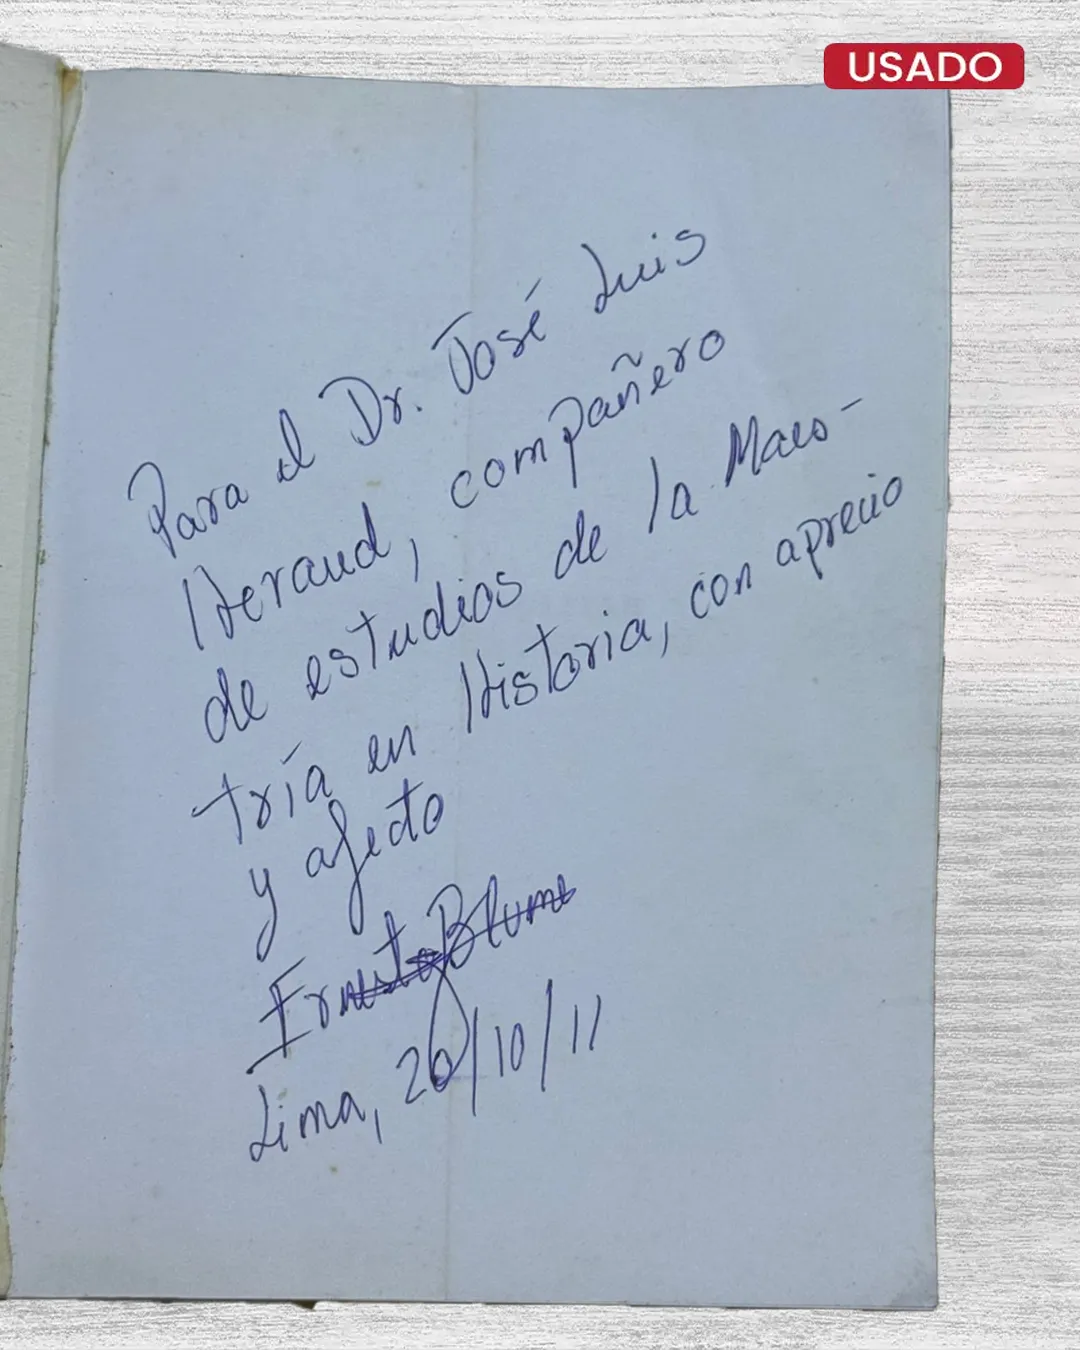 USADO
Para el Dr. José Luis
Heraud, compañero
de estudios de la Maes-
tría en Historia, con aprecio
y afecto
Ernesto Blume
Lima, 20/10/11